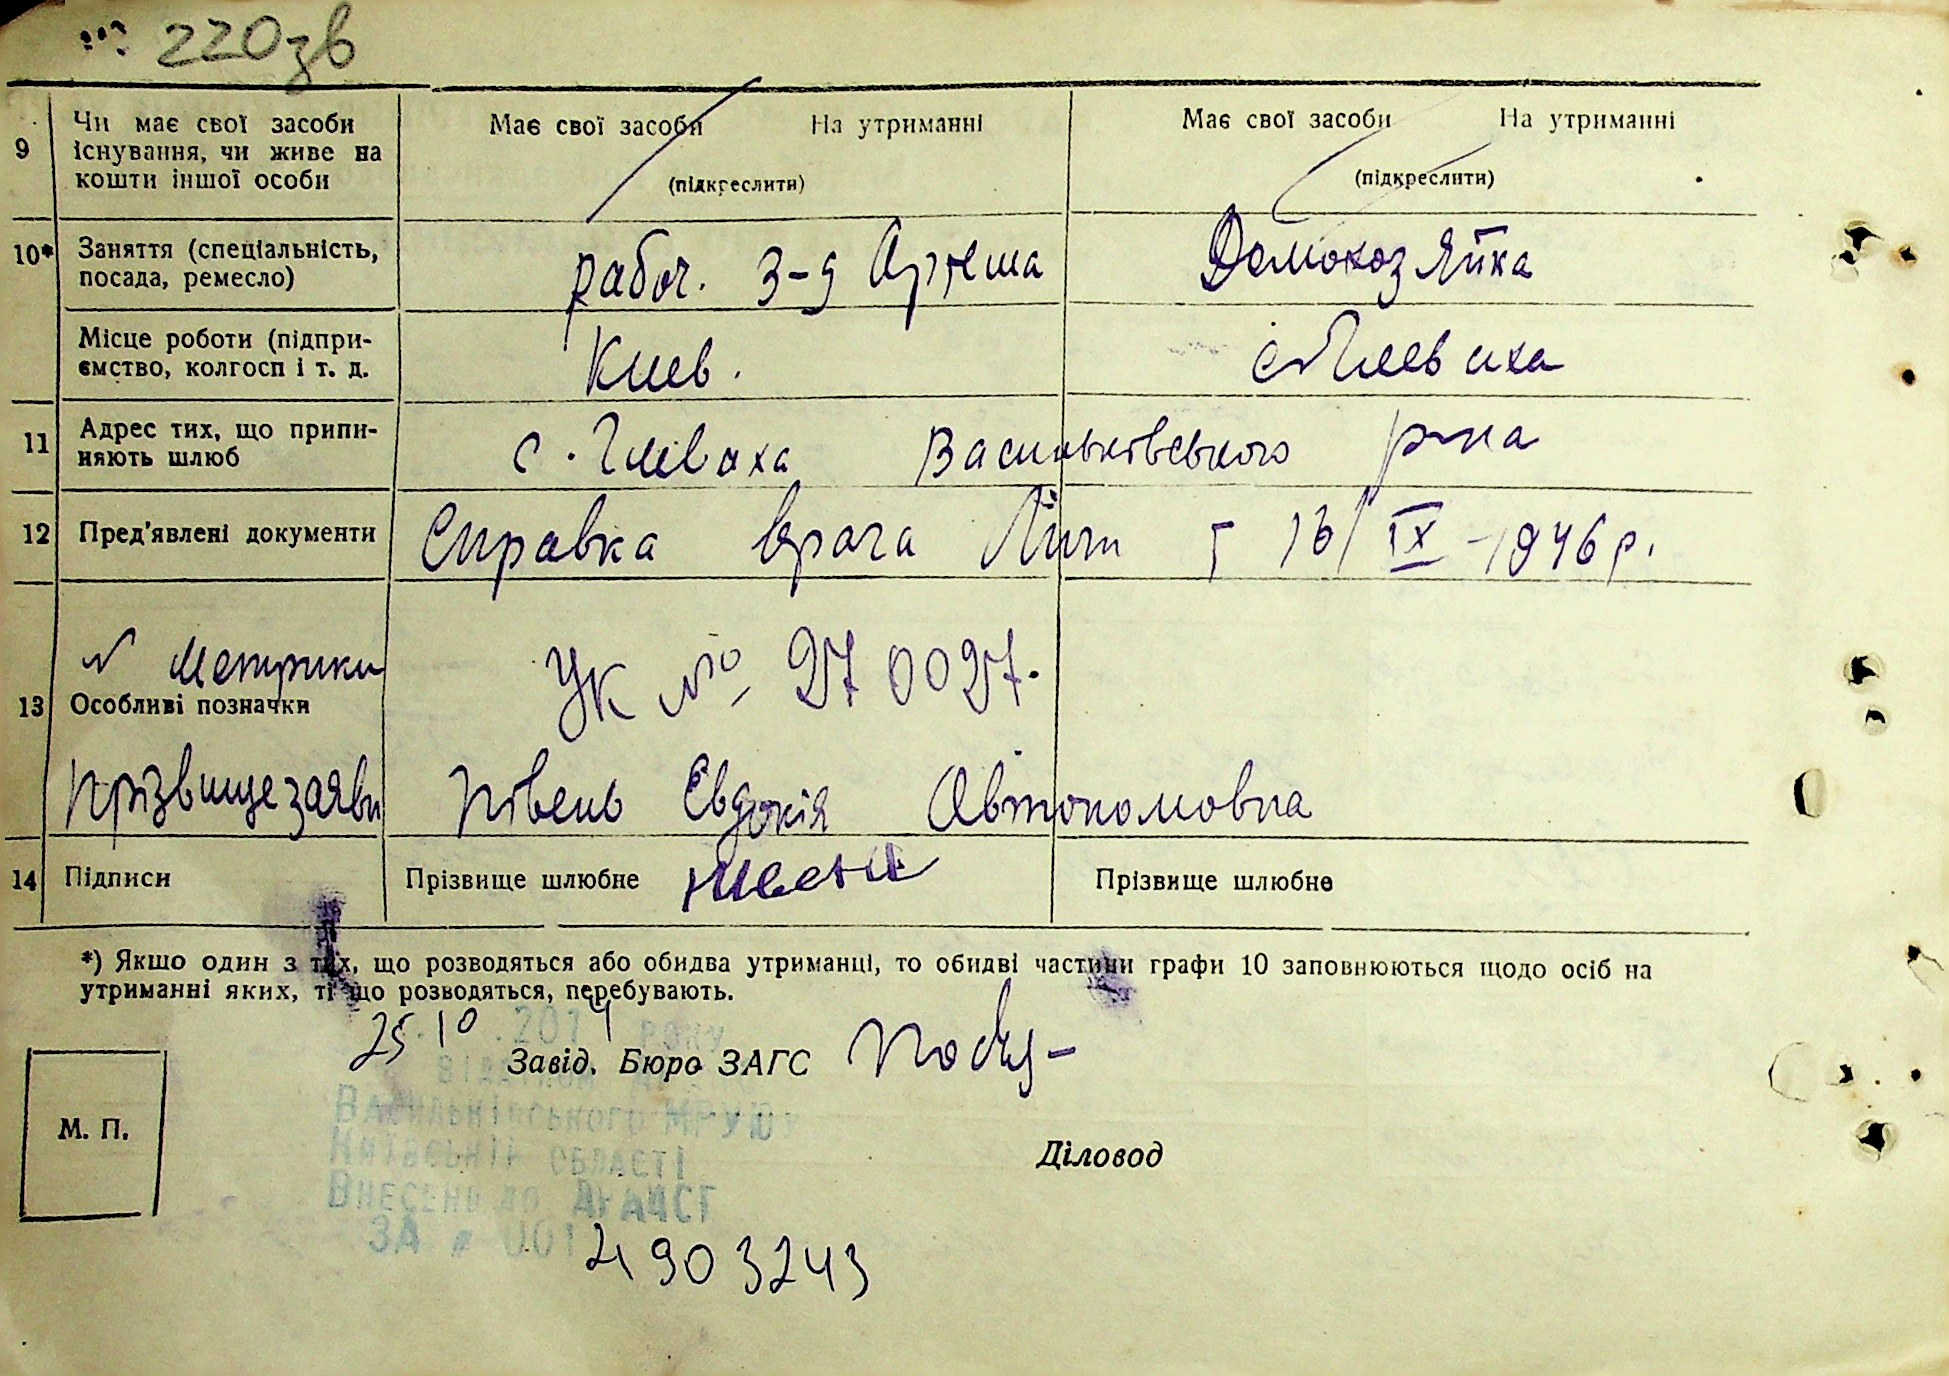 220зв
9 Чи має свої засоби існування, чи живе на кошти іншої особи
Має свої засоби На утриманні
(підкреслити)
Має свої засоби На утриманні
(підкреслити)
10* Заняття (спеціальність, посада, ремесло)
рабоч. з-д Артема
Домохозяйка
Місце роботи (підприємство, колгосп і т. д.
Киев.
с Глеваха
11 Адрес тих, що припиняють шлюб
с. Глеваха Васильківського р-на
12 Пред'явлені документи
Справка врача 16/IX-1946 р.
№ метрики
13 Особливі позначки
УК № 270027.
Прізвище заяви
Півень Євдокія Автономовна
14 Підписи
Прізвище шлюбне
Прізвище шлюбне
*) Якщо один з тих, що розводяться або обидва утриманці, то обидві частини графи 10 заповнюються щодо осіб на
утриманні яких, ті що розводяться, перебувають.
25.10.2014 року
Завід. Бюро ЗАГС
Васильківського МРУЮ
М. П.
Київській області
Діловод
Внесено до ДРАЦСГ
ЗА № 001
4903243